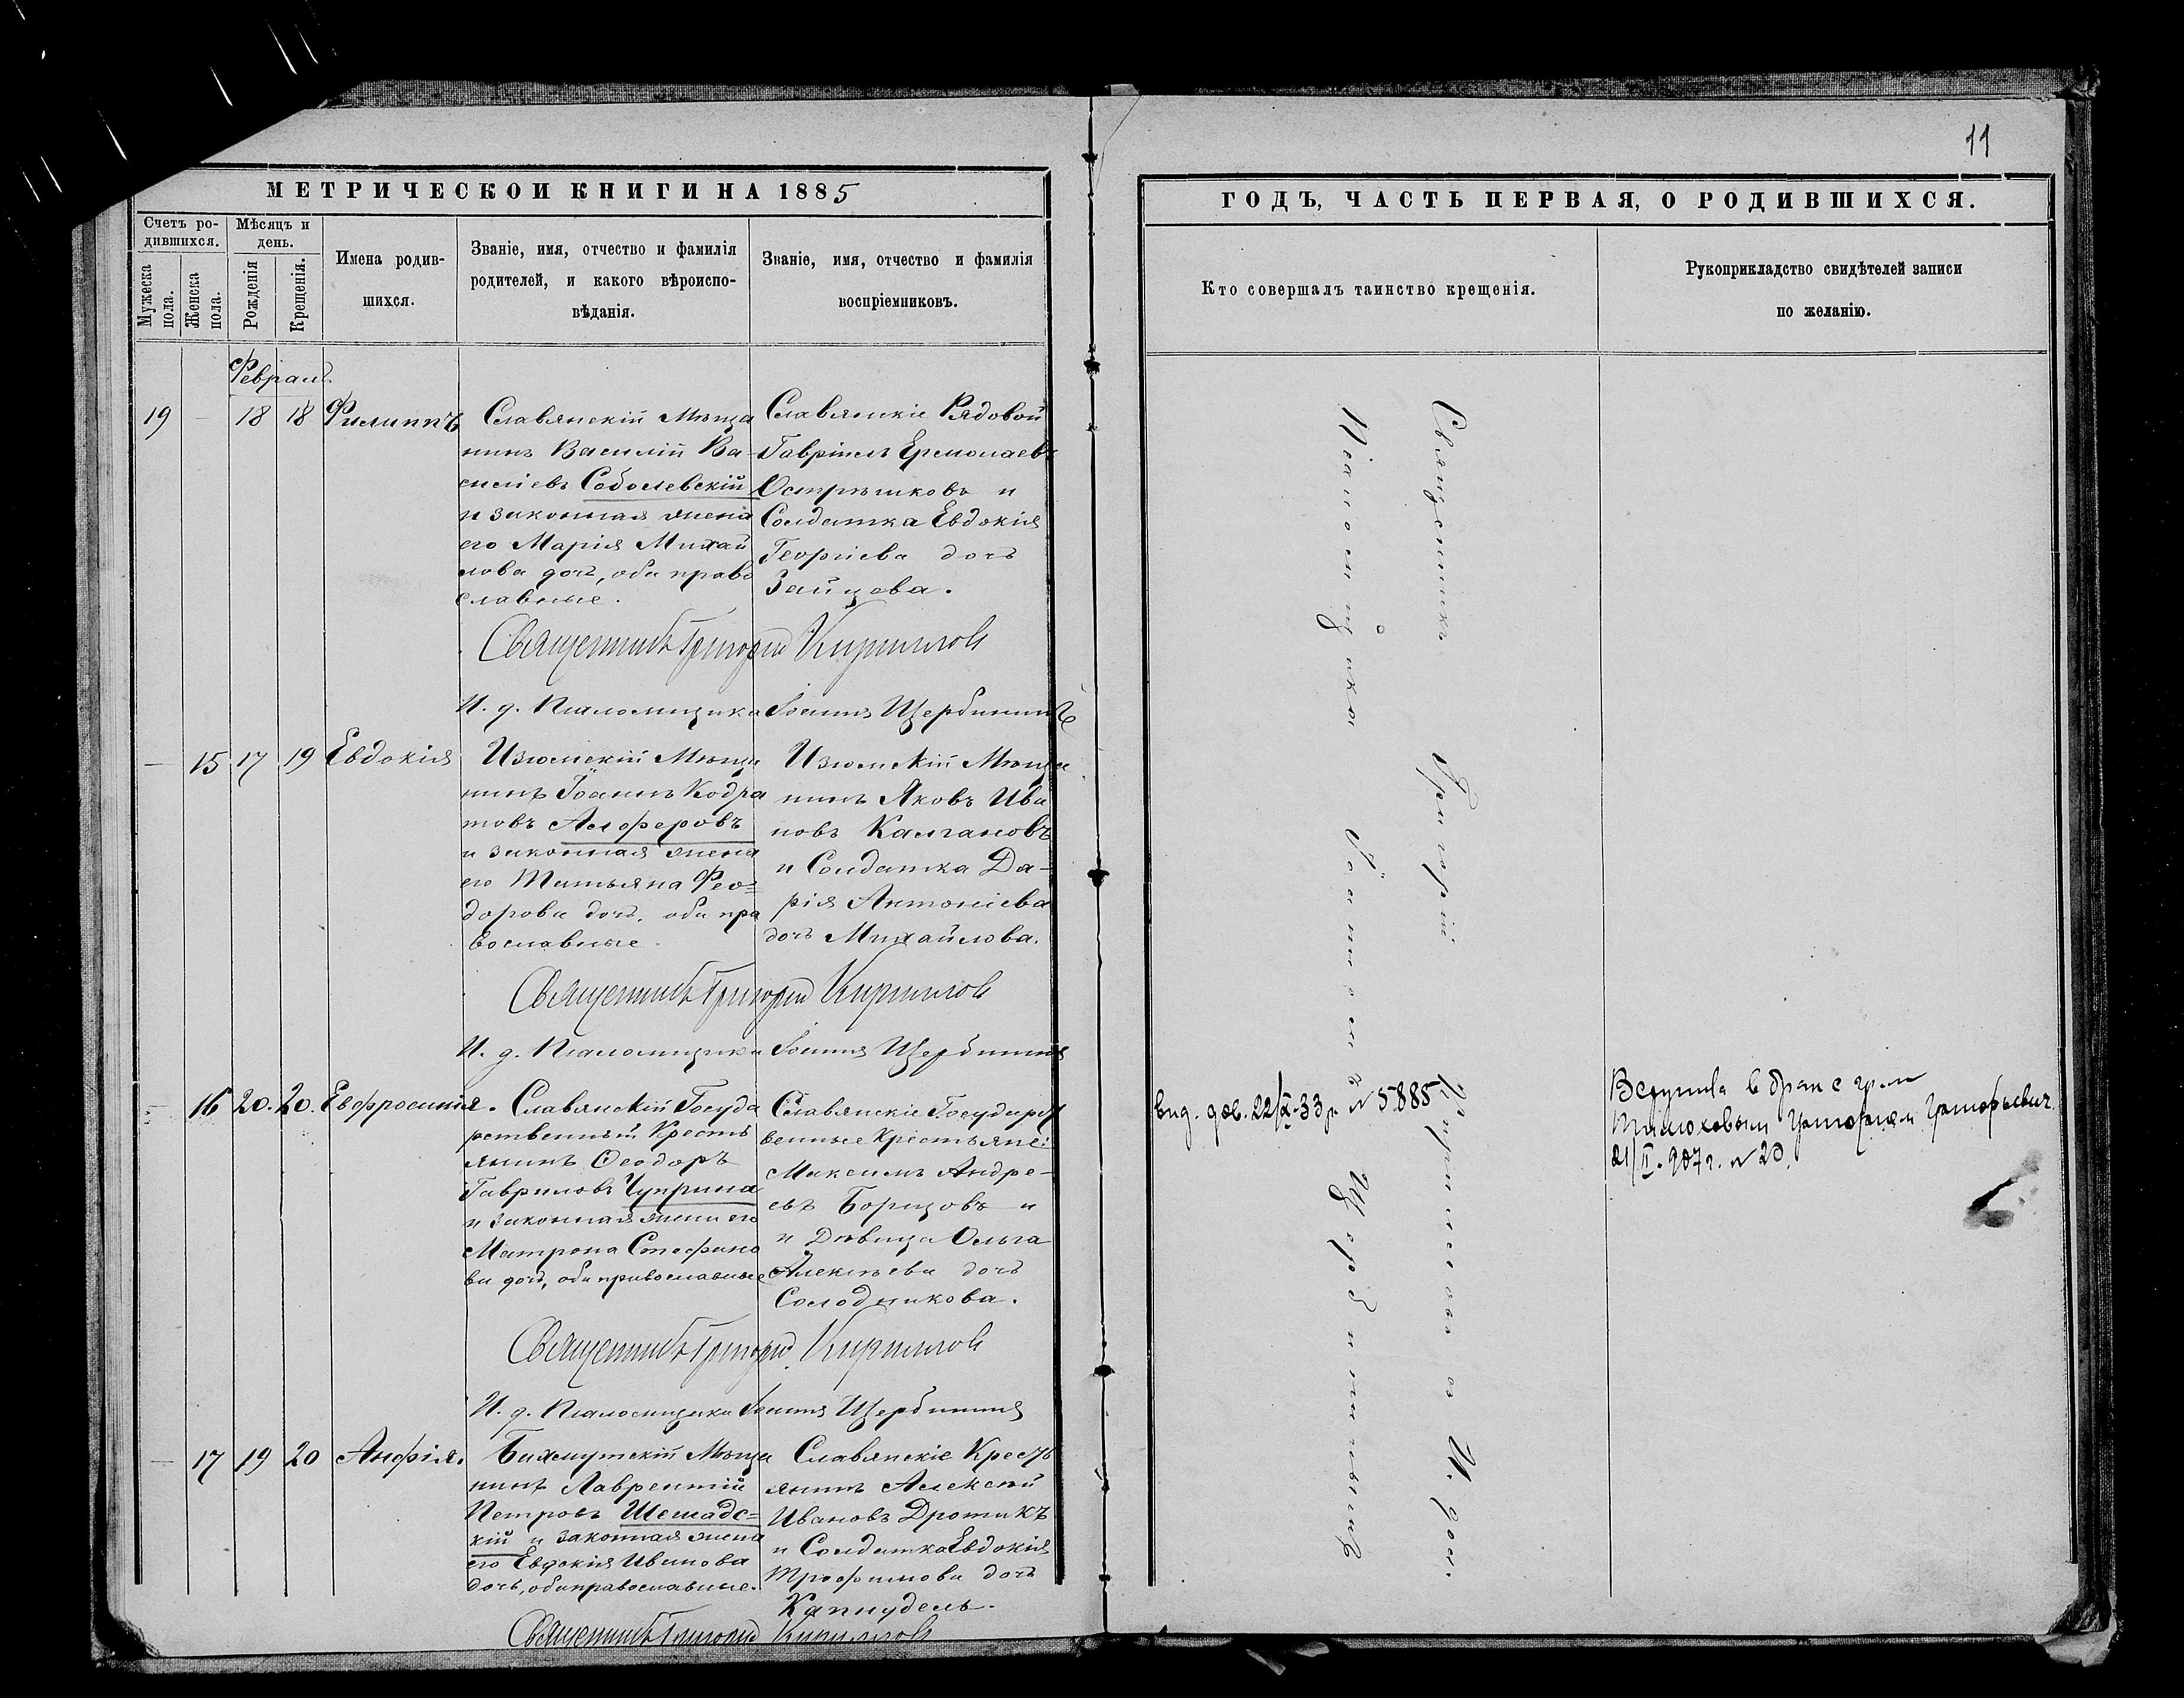 11
МЕТРИЧЕСКОЙ КНИГИ НА 1885
ГОДЪ, ЧАСТЬ ПЕРВАЯ, О РОДИВШИХСЯ.
Счетъ ро-
дившихся.
Мужеска
пола.
Женска
пола.
Мѣсяцъ и
день.
Рожденія
Крещенія.
Имена родив-
шихся.
Званіе, имя, отчество и фамилія
родителей, и какого вѣроиспо-
вѣданія.
Званіе, имя, отчество и фамилія
воспріемниковъ.
Кто совершалъ таинство крещенія.
Рукоприкладство свидѣтелей записи
по желанію.
Февраль
19 — 18 18 Филиппъ
Славянскій Мѣща
нинъ Василій Ва-
сильевъ Соболевскій
и законная жена
его Марія Михай
лова дочь, оба право
славные.
Славянскіе Рядовой
Гавріилъ Ермолаевъ
Остряшковъ и
Солдатка Евдокія
Георгіева дочь
Зайцова.
Священникъ Григорій Кирилловъ
И. д. Псаломщика Іоаннъ Щербининъ
— 15 17 19 Евдокія
Изюмскій Мѣща
нинъ Іоаннъ Кодра
товъ Алферовъ
и законная жена
его Татьяна Фео-
дорова дочь, оба пра
вославные.
Изюмскій Мѣща
нинъ Яковъ Ива
новъ Калгановъ
и Солдатка Да-
рія Антоніева
дочь Михайлова.
Священникъ Григорій Кирилловъ
И. д. Псаломщика Іоаннъ Щербининъ
— 16 20. 20. Евфросинія.
Славянскій Госуда
рственный Кресть
янинъ Ѳеодоръ
Гавриловъ Чуприна
и законная жена его
Матрона Стефано
ва дочь, оба православные
Славянскіе Государст
венные Крестьяне:
Максимъ Андре-
евъ Борцовъ и
и Дѣвица Ольга
Алексѣева дочь
Солодникова.
Священникъ Григорій Кирилловъ
И. д. Псаломщика Іоаннъ Щербининъ
— 17 19 20 Анфія.
Бахмутскій Мѣща
нинъ Лаврентій
Петровъ Шемадс-
кій и законная жена
его Евдокія Иванова
дочь, оба православные.
Славянскіе Кресть
янинъ Алексѣй
Ивановъ Дротикъ
и Солдатка Евдокія
Трофимова дочь
Капнудель.
Священникъ Григорій Кирилловъ
Священникъ Григорій Кирилловъ И. дол.
Псаломщика Іоаннъ Щербининъ
выд. дов. 22/IX-33 р. № 5885
Вступила в брак с гр-м
Григорием Григорьевич.
21/II-907 г. № 20.